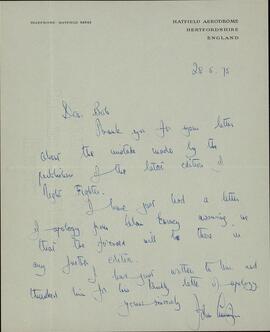 HATFIELD AERODROME
HERTFORDSHIRE
ENGLAND
TELEPHONE: HATFIELD
28.6.75
Dear Bob
Thank you for your letter
about the mistake made by the
publishers of the latest edition of
Night Fighter.
I have just had a letter
of apology from William assuring me
that the foreword will be there in
any further edition.
I have just written to him and
thanked him for his kindly letter of apology
yours sincerely
John